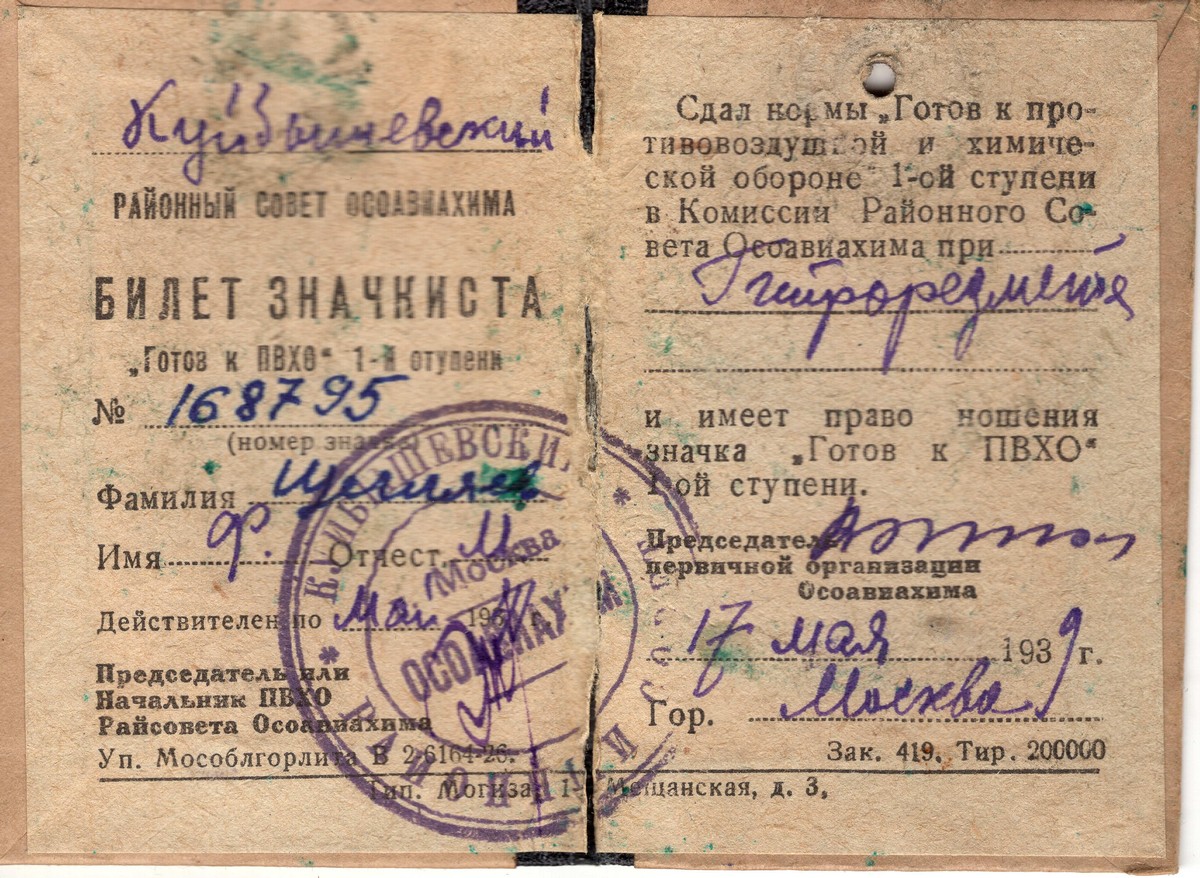 Куйбышевский
РАЙОННЫЙ СОВЕТ ОСОАВИАХИМА
БИЛЕТ ЗНАЧКИСТА
„Готов к ПВХО“ 1-й ступени
№ 168795
(номер значка)
Фамилия
Имя Ф. Отчест. М.
Действителен по Май 19
Председатель или
Начальник ПВХО
Райсовета Осоавиахима
Уп. Мособлгорлита В 2-6164-26.
Тип. Могиза, 1-я Мещанская, д. 3.
КУЙБЫШЕВСКИЙ
РАЙОННЫЙ СОВЕТ
Москва
ОСОАВИАХИМ
Сдал нормы „Готов к про-
тивовоздушной и химиче-
ской обороне“ 1-ой ступени
в Комиссии Районного Со-
вета Осоавиахима при
Гипроредмете
и имеет право ношения
значка „Готов к ПВХО“
1-ой ступени.
Председатель
первичной организации
Осоавиахима
17 мая 1939 г.
Гор. Москва
Зак. 419. Тир. 200000